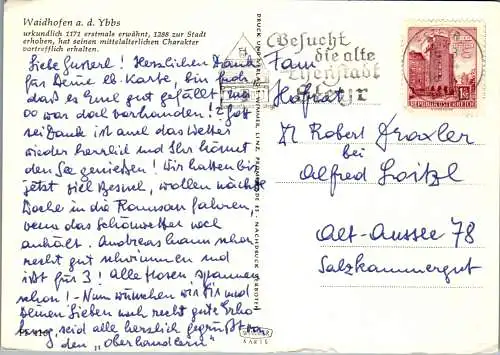 Waidhofen a. d. Ybbs
urkundlich 1171 erstmals erwähnt, 1288 zur Stadt
erhoben, hat seinen mittelalterlichen Charakter
vortrefflich erhalten.
Liebe Gusterl! Herzlichen Dank
für Deine lb. Karte, bin froh
daß es Euch gut gefällt
war doch vorhanden! Gott
sei Dank ist auch das Wetter
wieder herrlich und Ihr könnt
den See genießen! Wir hatten bis
jetzt viel Besuch, wollen nächste
Woche in die Ramsau fahren,
wenn das Schönwetter noch
anhält. Andreas kann schon
recht gut schwimmen und
ißt für 3! Alle Hosen spannen
schon! – Nun wünschen wir Dir und
Deinen Lieben noch recht gute Erho-
lung, seid alle herzlich gegrüßt von
den "Oberhandlern"
DRUCK UND VERLAG
NACHDRUCK VERBOTEN
KARTE
Besucht
die alte
Eisenstadt
Steyr
REPUBLIK ÖSTERREICH
Hofrat
Dr Robert Draxler
bei
Alfred Loitzl
Alt-Aussee 78
Salzkammergut